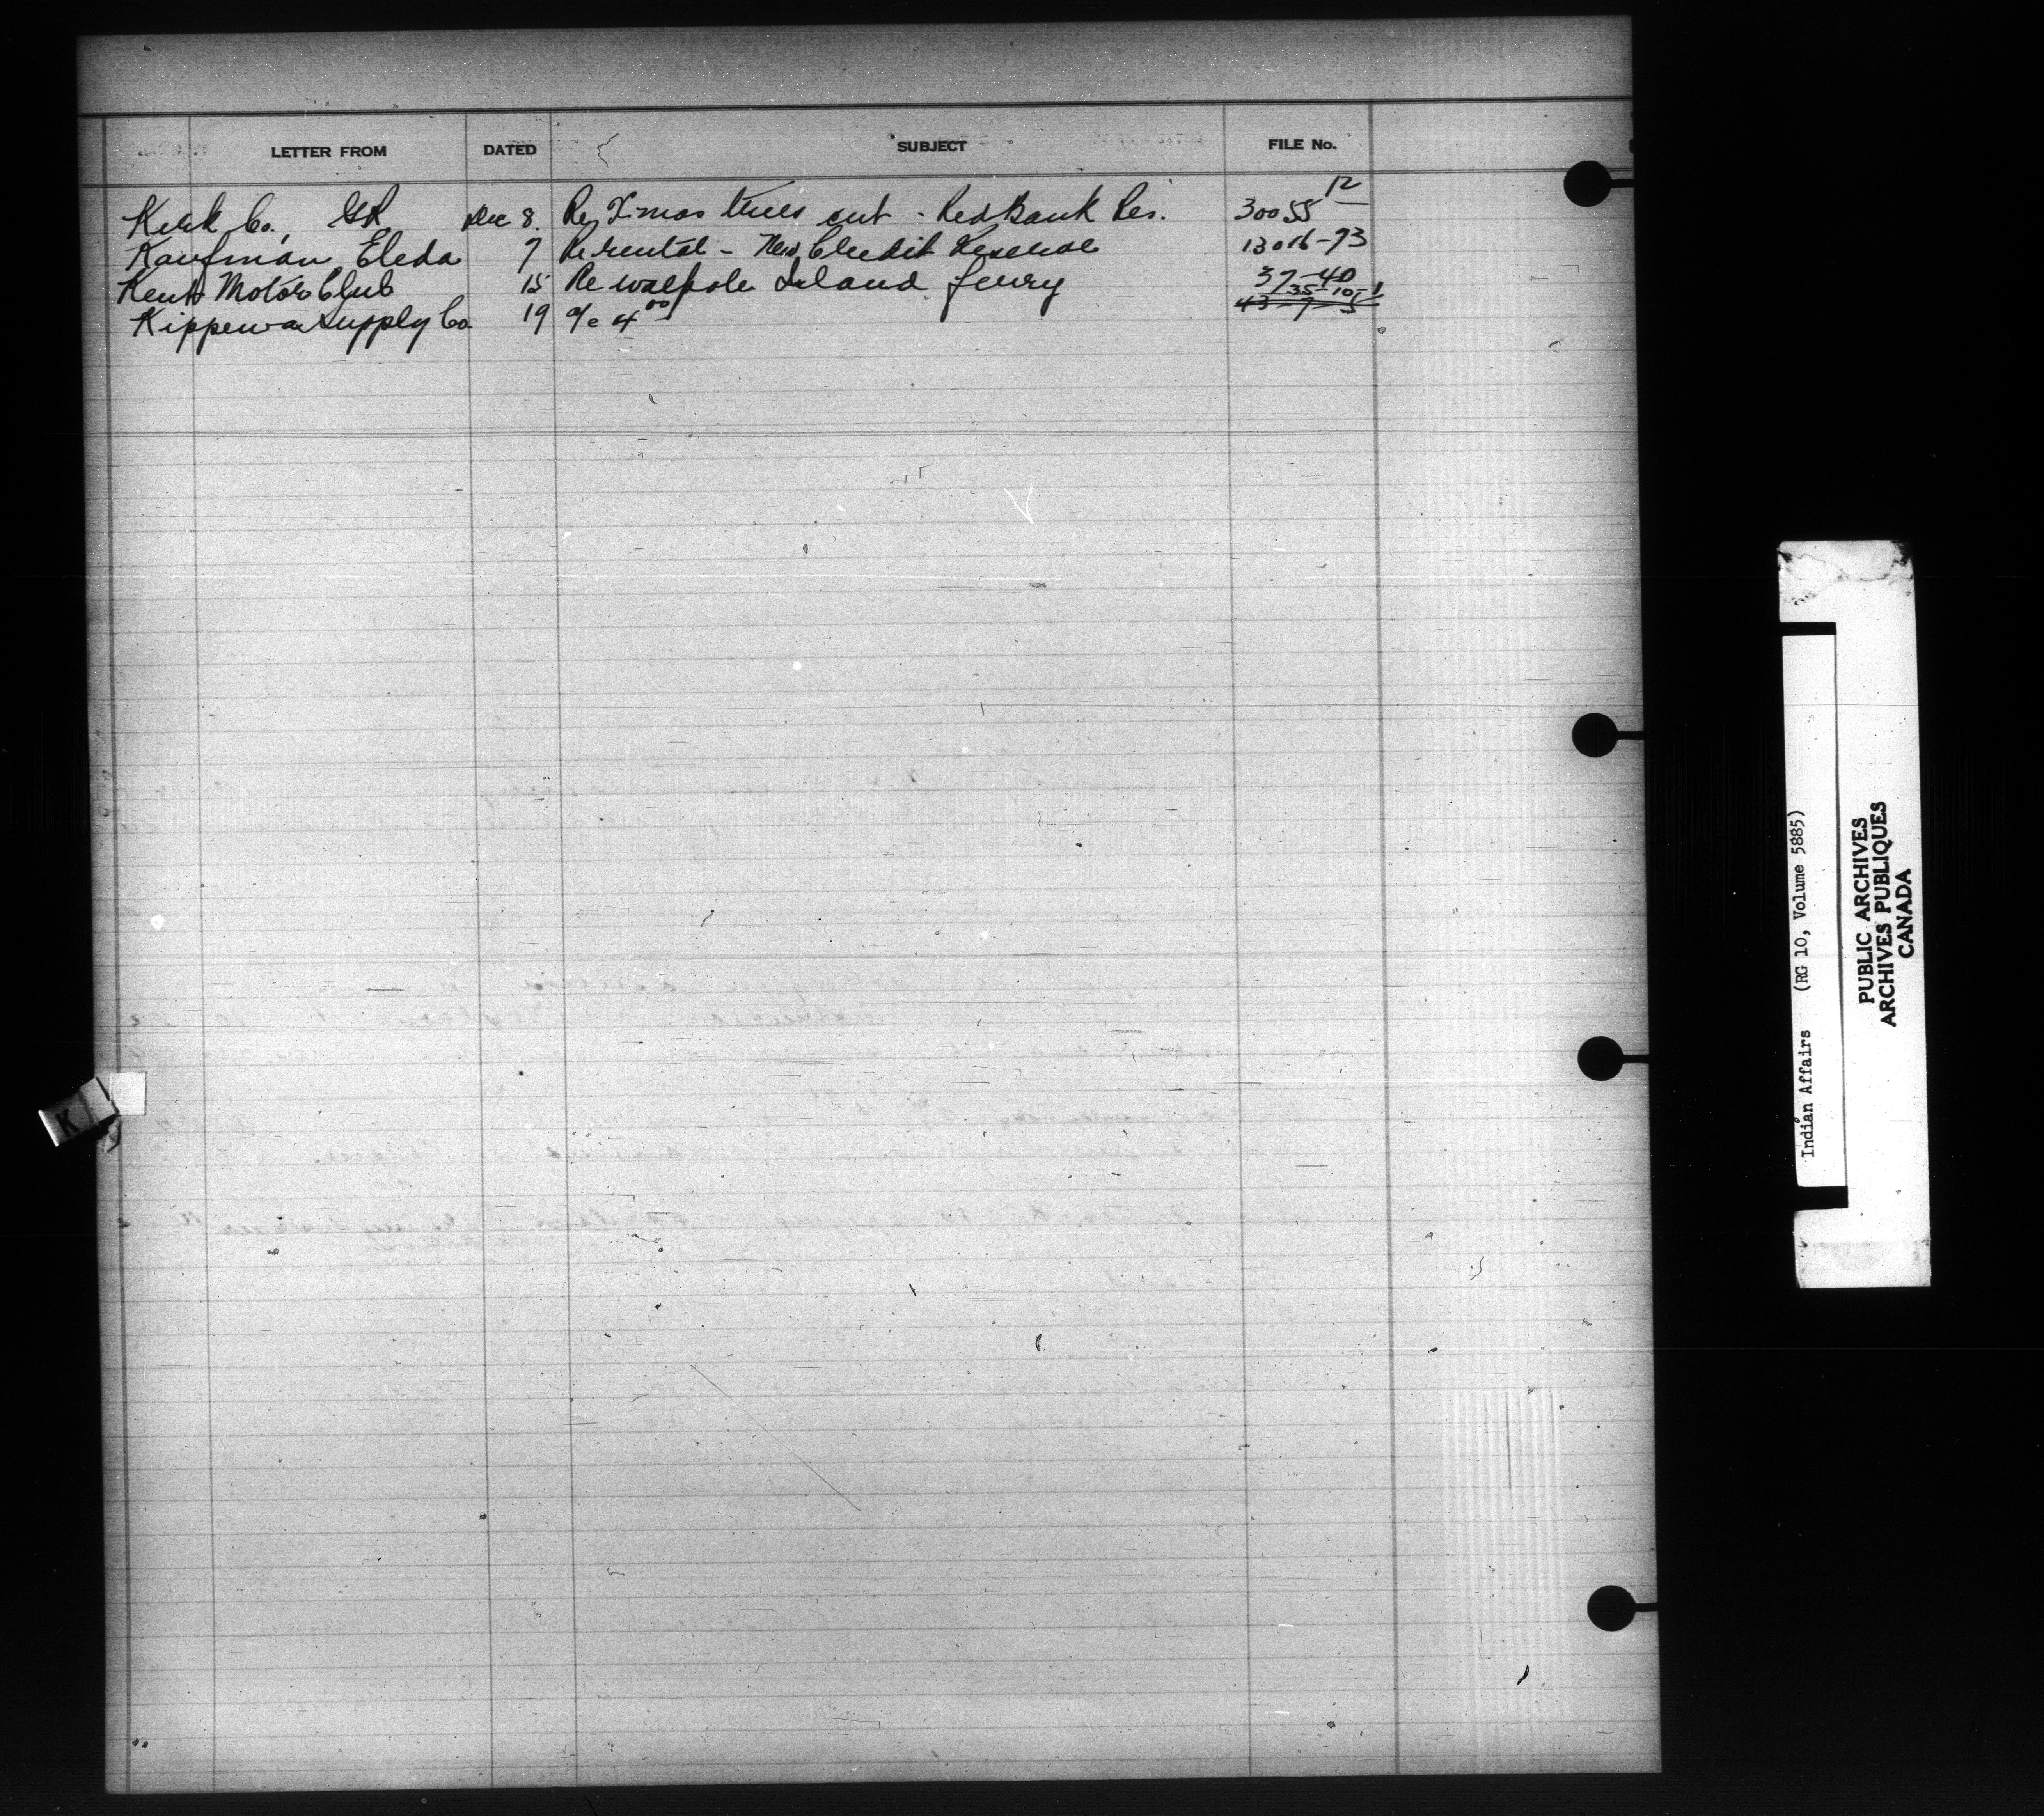 LETTER FROM DATED SUBJECT FILE No.
Kerk Co., GR Dec 8. Re X-mas trees cut - Red Bank Res. 30055 12
Kaufman Eleda 7 Re rental - New Credit Reserve 13016-93
Kent Motor Club 15 Re Walpole Island ferry 37-40
Kippewa Supply Co. 19 a/c 4 00 35-10-1
43-7-5
K
Indian Affairs (RG 10, Volume 5885)
PUBLIC ARCHIVES
ARCHIVES PUBLIQUES
CANADA